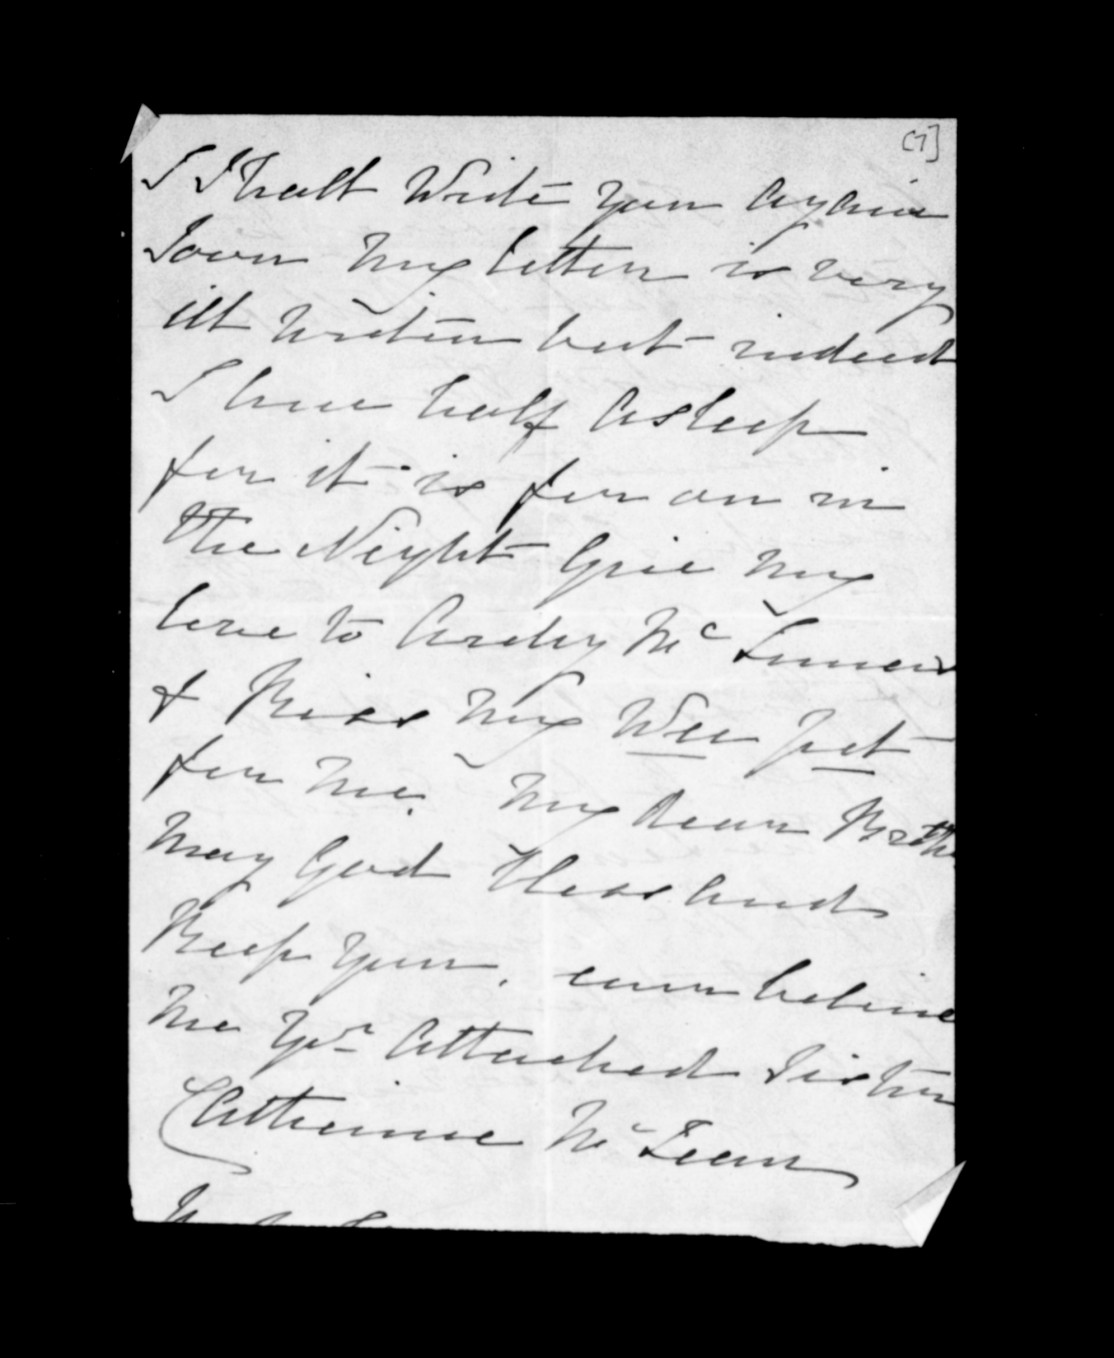 [7]
I Shall Write you again
Soon My letter is very
ill written but indeed
I half asleep
for it is far on in
the Night Give my
love to Mc
& Kiss My Wee pet
for me. My dear Brother
May God Bless and
Keep you, ever believe
me Yr attached Sister
Catherine Mc Lean